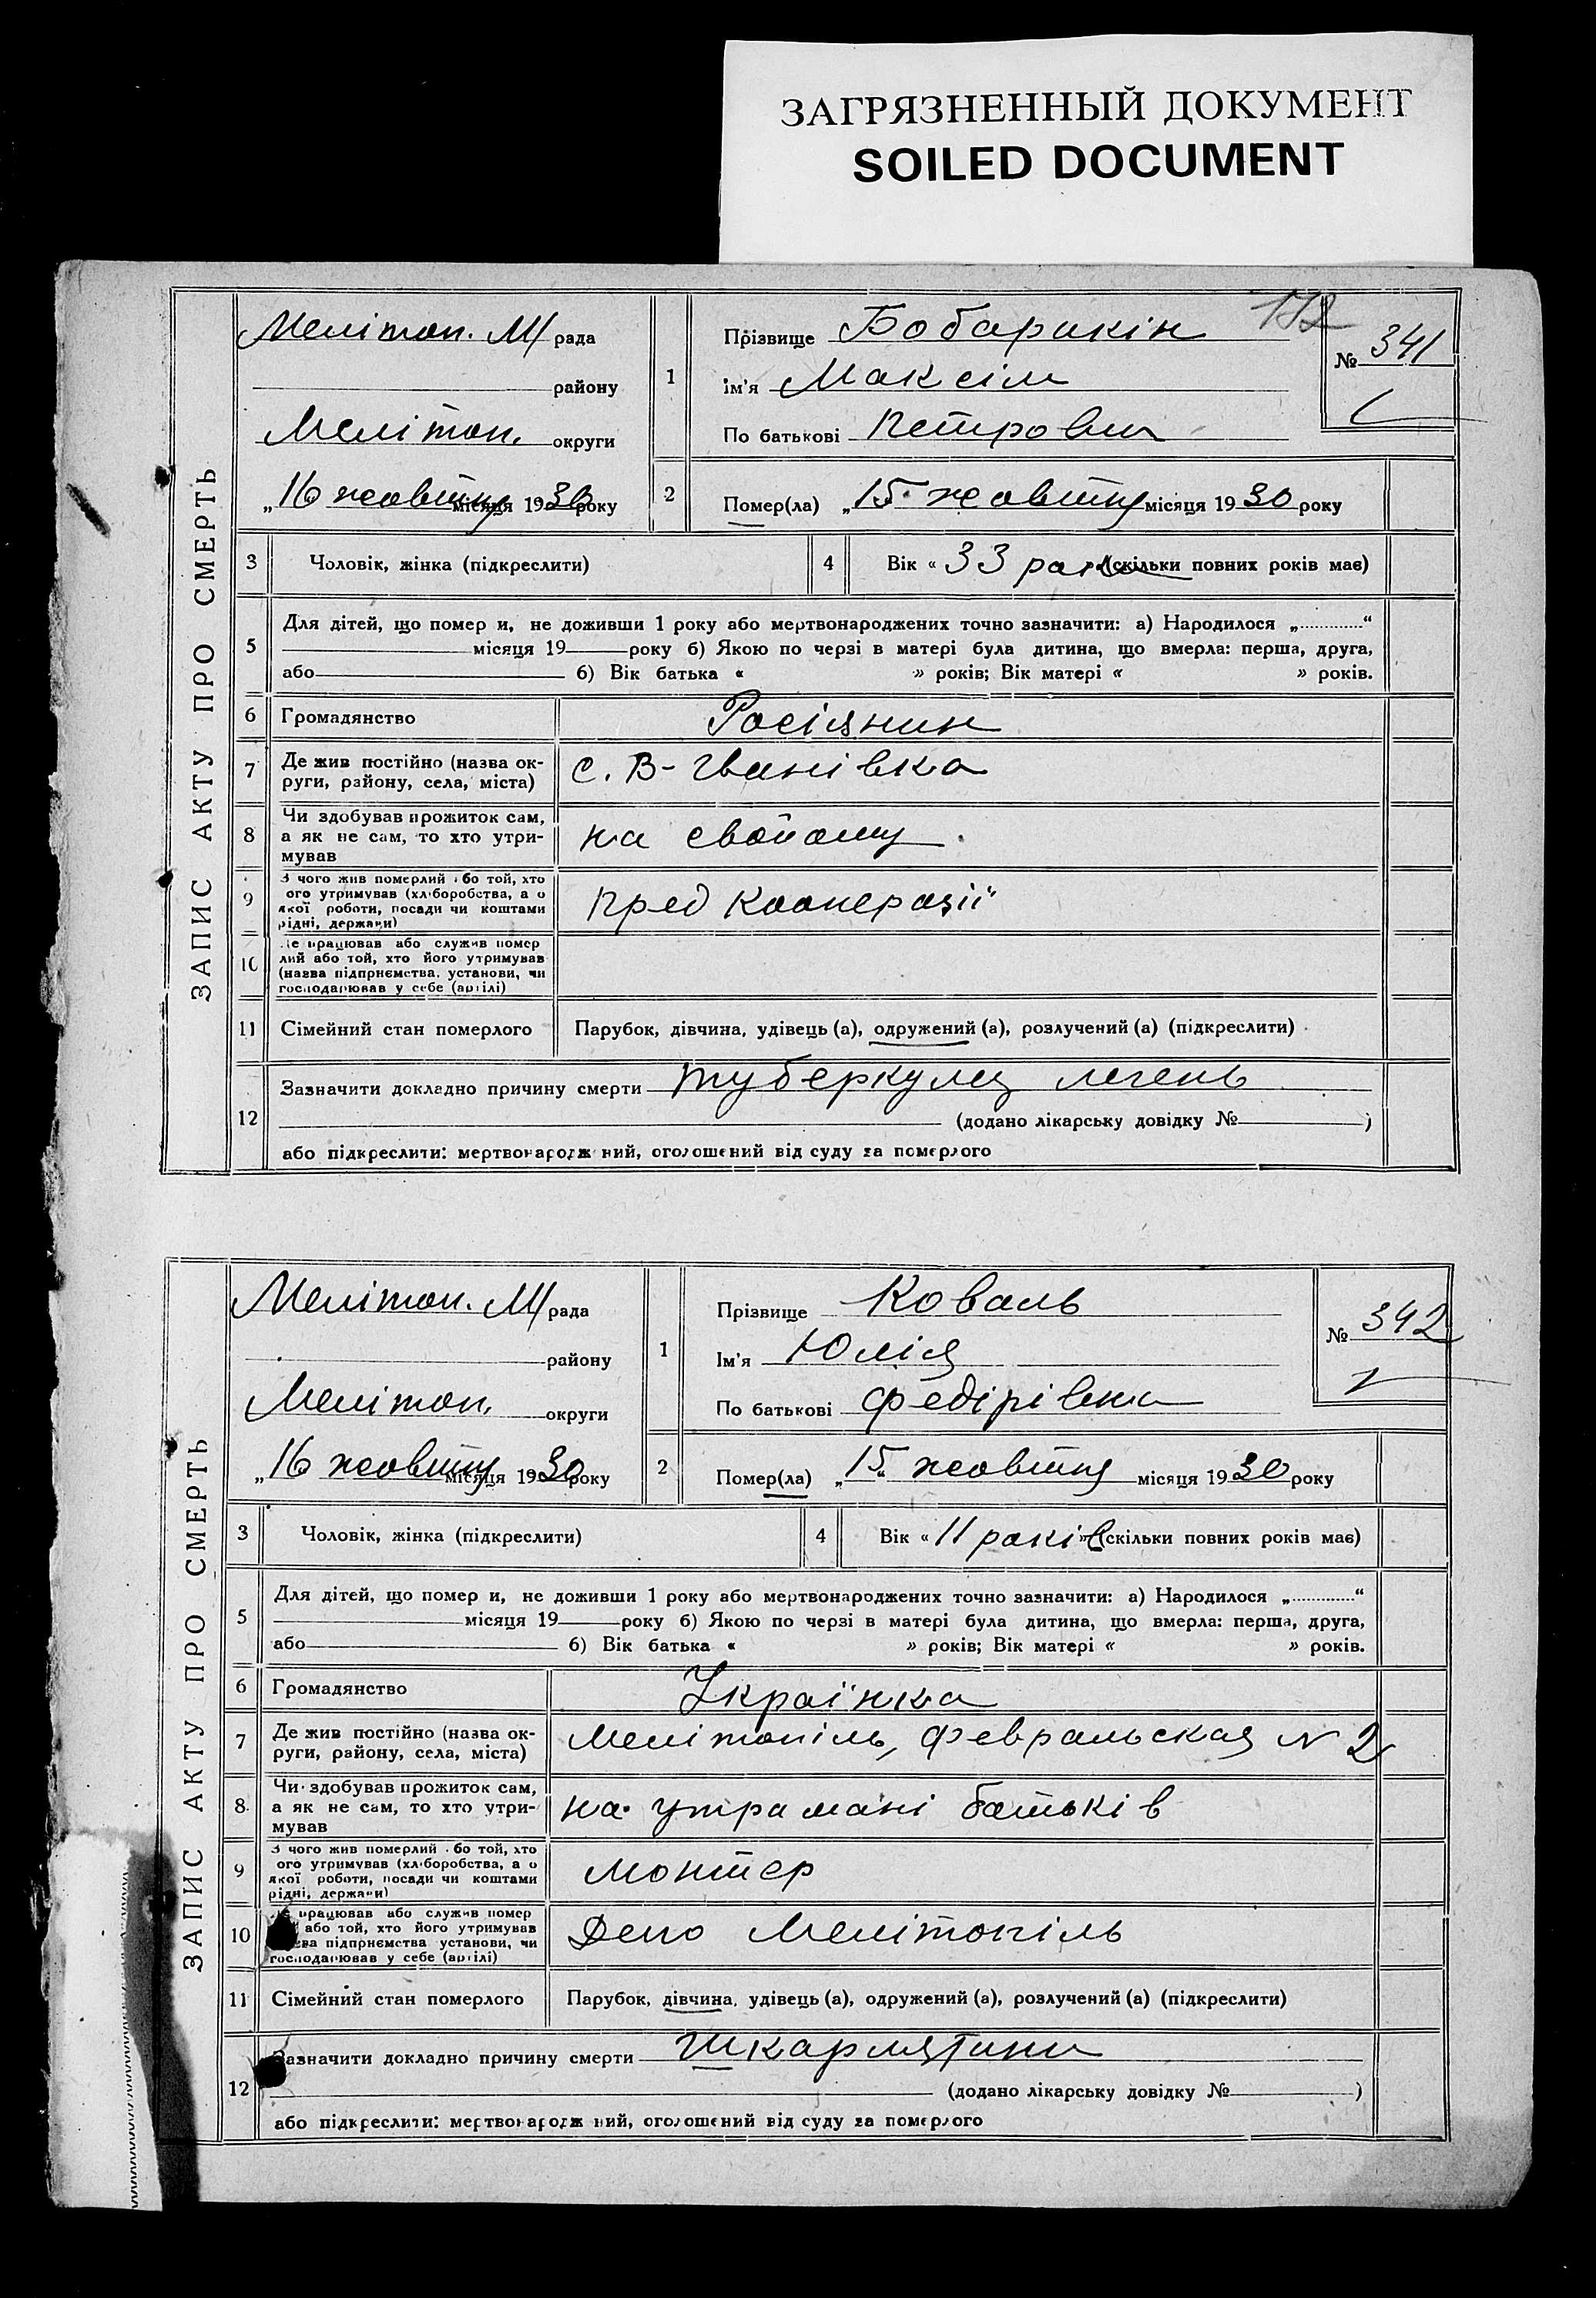 ЗАГРЯЗНЕННЫЙ ДОКУМЕНТ
SOILED DOCUMENT
ЗАПИС АКТУ ПРО СМЕРТЬ
Меліто​п. М/рада
району
Меліто​п. округи
„16 жовтня місяця 1930 року
172
№ 341
1 Прізвище Бобарикін
Ім'я Максім
По батькові Петрович
2 Помер(ла) „15" жовтня місяця 1930 року
3 Чоловік, жінка (підкреслити)
4 Вік « 33 роки » (скільки повних років має)
5 Для дітей, що помер и, не доживши 1 року або мертвонароджених точно зазначити: а) Народилося „............“
місяця 19 року б) Якою по черзі в матері була дитина, що вмерла: перша, друга,
або б) Вік батька « » років; Вік матері « » років.
6 Громадянство Росіянин
7 Де жив постійно (назва ок-
руги, району, села, міста) с. В-Іванівка
8 Чи здобував прожиток сам,
а як не сам, то хто утри-
мував на свойому
9 З чого жив померлий або той, хто
ого утримував (хліборобства, а о
якої роботи, посади чи коштами
рідні, держави) пред кооперації
10 Де працював або служив помер
лий або той, хто його утримував
(назва підприємства, установи, чи
господарював у себе (артілі)
11 Сімейний стан померлого Парубок, дівчина, удівець (а), одружений (а), розлучений (а) (підкреслити)
12 Зазначити докладно причину смерти туберкулез легень
(додано лікарську довідку № )
або підкреслити: мертвонароджений, оголошений від суду за померлого
ЗАПИС АКТУ ПРО СМЕРТЬ
Меліто​п. М/рада
району
Меліто​п. округи
„16 жовтня місяця 1930 року
№ 342
1 Прізвище Коваль
Ім'я Юлія
По батькові Федірівна
2 Помер(ла) „15" жовтня місяця 1930 року
3 Чоловік, жінка (підкреслити)
4 Вік « 11 років » (скільки повних років має)
5 Для дітей, що помер и, не доживши 1 року або мертвонароджених точно зазначити: а) Народилося „............“
місяця 19 року б) Якою по черзі в матері була дитина, що вмерла: перша, друга,
або б) Вік батька « » років; Вік матері « » років.
6 Громадянство Українка
7 Де жив постійно (назва ок-
руги, району, села, міста) Мелітопіль, Февральская N 2
8 Чи здобував прожиток сам,
а як не сам, то хто утри-
мував на утримані батьків
9 З чого жив померлий або той, хто
ого утримував (хліборобства, а о
якої роботи, посади чи коштами
рідні, держави) монтер
10 працював або служив помер
або той, хто його утримував
підприємства установи, чи
господарював у себе (артілі) Депо Мелітопіль
11 Сімейний стан померлого Парубок, дівчина, удівець (а), одружений (а), розлучений (а) (підкреслити)
12 Зазначити докладно причину смерти Шкарлятина
(додано лікарську довідку № )
або підкреслити: мертвонароджений, оголошений від суду за померлого